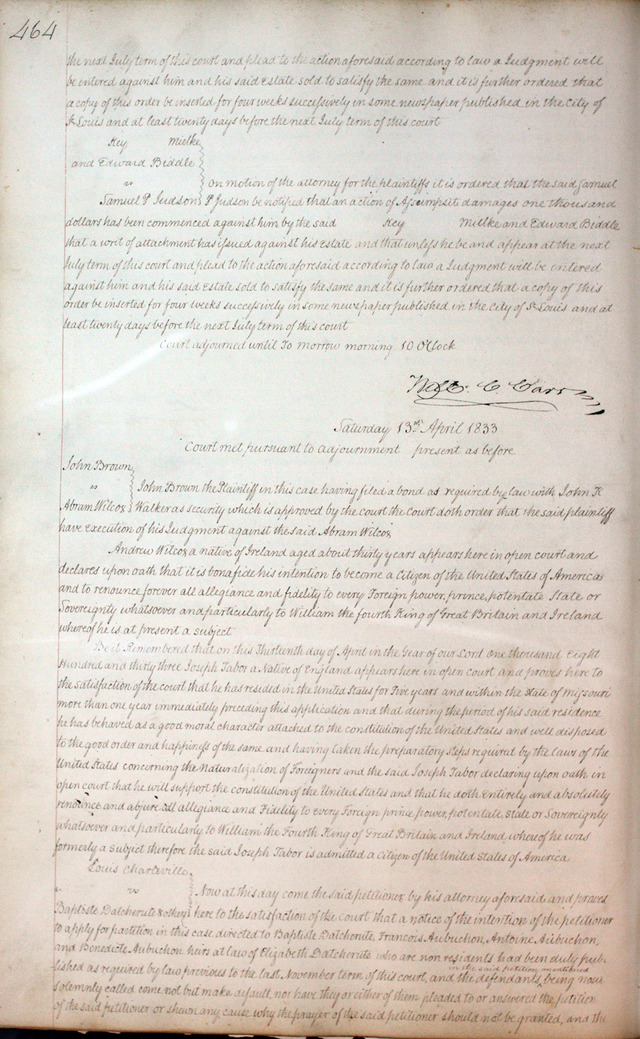 464
the next July term of this court and plead to the action aforesaid according to law a Judgment will
be entered against him and his said Estate sold to satisfy the same and it is further ordered that
a copy of this order be inserted for four weeks successively in some newspaper published in the City of
St Louis and at least twenty days before the next July term of this court
Key Mielke
and Edward Biddle
vs
On motion of the attorney for the plaintiffs it is ordered that the said Samuel
Samuel P Judson P Judson be notified that an action of Assumpsit damages one thousand
dollars has been commenced against him by the said Key Mielke and Edward Biddle
that a writ of attachment has issued against his estate and that unless he be and appear at the next
July term of this court and plead to the action aforesaid according to law a Judgment will be entered
against him and his said Estate sold to satisfy the same and it is further ordered that a copy of this
order be inserted for four weeks successively in some newspaper published in the City of St Louis and at
least twenty days before the next July term of this court
Court adjourned until To morrow morning 10 OClock
C. Carr
Saturday 13th April 1833
Court met pursuant to adjournment present as before
John Brown
vs John Brown the Plaintiff in this case having filed a bond as required by law with John K
Abram Wilcox Walker as security which is approved by the court the court doth order that the said plaintiff
have execution of his Judgment against the said Abram Wilcox
Andrew Wilcox a native of Ireland aged about thirty years appears here in open court and
declares upon oath that it is bonafide his intention to become a Citizen of the United States of America
and to renounce forever all allegiance and fidelity to every Foreign power, prince, potentate State or
Sovereignty whatsoever and particularly to William the fourth King of Great Britain and Ireland
whereof he is at present a subject
Be it Remembered that on this Thirteenth day of April in the Year of our Lord one thousand Eight
Hundred and thirty three Joseph Tabor a Native of England appears here in open court and proves here to
the satisfaction of the court that he has resided in the United States for Five years and within the State of Missouri
more than one year immediately preceding this application and that during the period of his said residence
he has behaved as a good moral character attached to the constitution of the United States and well disposed
to the good order and happiness of the same and having taken the preparatory steps required by the laws of the
United States concerning the Naturalization of Foreigners and the said Joseph Tabor declaring upon oath in
open court that he will support the constitution of the United States and that he doth Entirely and absolutely
renounce and abjure all allegiance and Fidelity to every Foreign prince, power, potentate, state or Sovereignty
whatsoever and particularly to William the Fourth King of Great Britain and Ireland, whereof he was
formerly a subject therefore the said Joseph Tabor is admitted a Citizen of the United States of America
Louis Charleville
vs Now at this day come the said petitioner by his attorney aforesaid and proves
Baptiste Datcherute & others here to the satisfaction of the court that a notice of the intention of the petitioner
to apply for partition in this case directed to Baptiste Datcherute, Francois Aubuchon, Antoine Aubuchon,
and Benedicte Aubuchon heirs at law of Elizabeth Datcherute who are non residents had been duly pub-
lished as required by law previous to the last November term of this court, and the defendants in the said petition mentioned being now
solemnly called come not but make default, nor have they or either of them pleaded to or answered the petition
of the said petitioner or shewn any cause why the prayer of the said petitioner should not be granted, and the